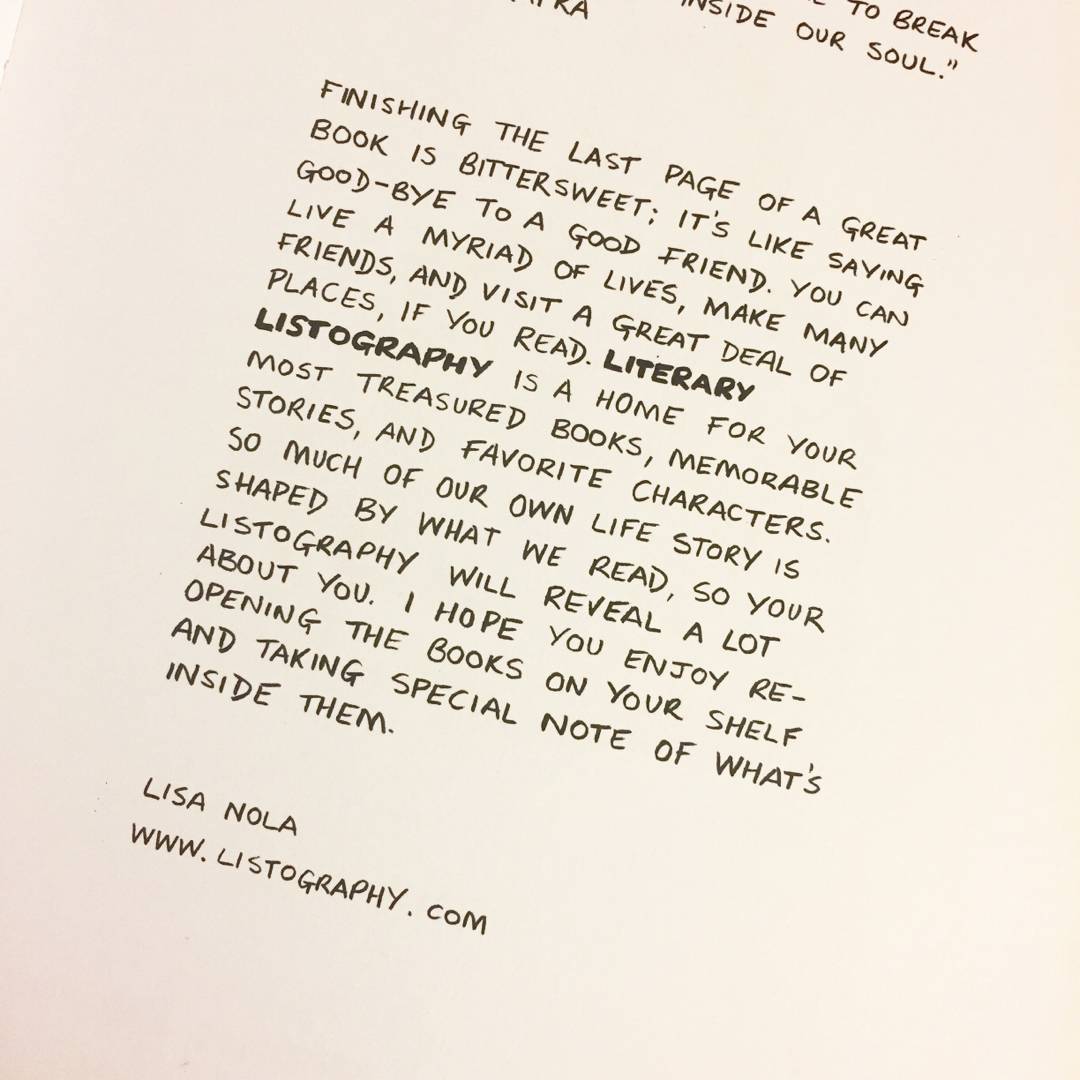 TO BREAK
INSIDE OUR SOUL."
FINISHING THE LAST PAGE OF A GREAT
BOOK IS BITTERSWEET; IT'S LIKE SAYING
GOOD-BYE TO A GOOD FRIEND. YOU CAN
LIVE A MYRIAD OF LIVES, MAKE MANY
FRIENDS, AND VISIT A GREAT DEAL OF
PLACES, IF YOU READ. LITERARY
LISTOGRAPHY IS A HOME FOR YOUR
MOST TREASURED BOOKS, MEMORABLE
STORIES, AND FAVORITE CHARACTERS.
SO MUCH OF OUR OWN LIFE STORY IS
SHAPED BY WHAT WE READ, SO YOUR
LISTOGRAPHY WILL REVEAL A LOT
ABOUT YOU. I HOPE YOU ENJOY RE-
OPENING THE BOOKS ON YOUR SHELF
AND TAKING SPECIAL NOTE OF WHAT'S
INSIDE THEM.
LISA NOLA
WWW.LISTOGRAPHY.COM